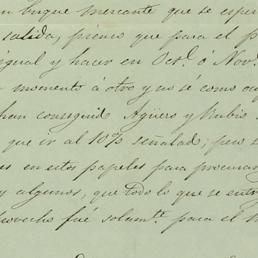 n buque mercante que se esper
salida, premio que para el p
igual y hacer en Octe. ó Nove.
momento á otro y no sé como
han conseguido Agüero y Rubio
que ir al 10% señalado; pero
es en estos papeles para procurar
y algunos, que todo lo que se entr
provecho fué solamte. para el